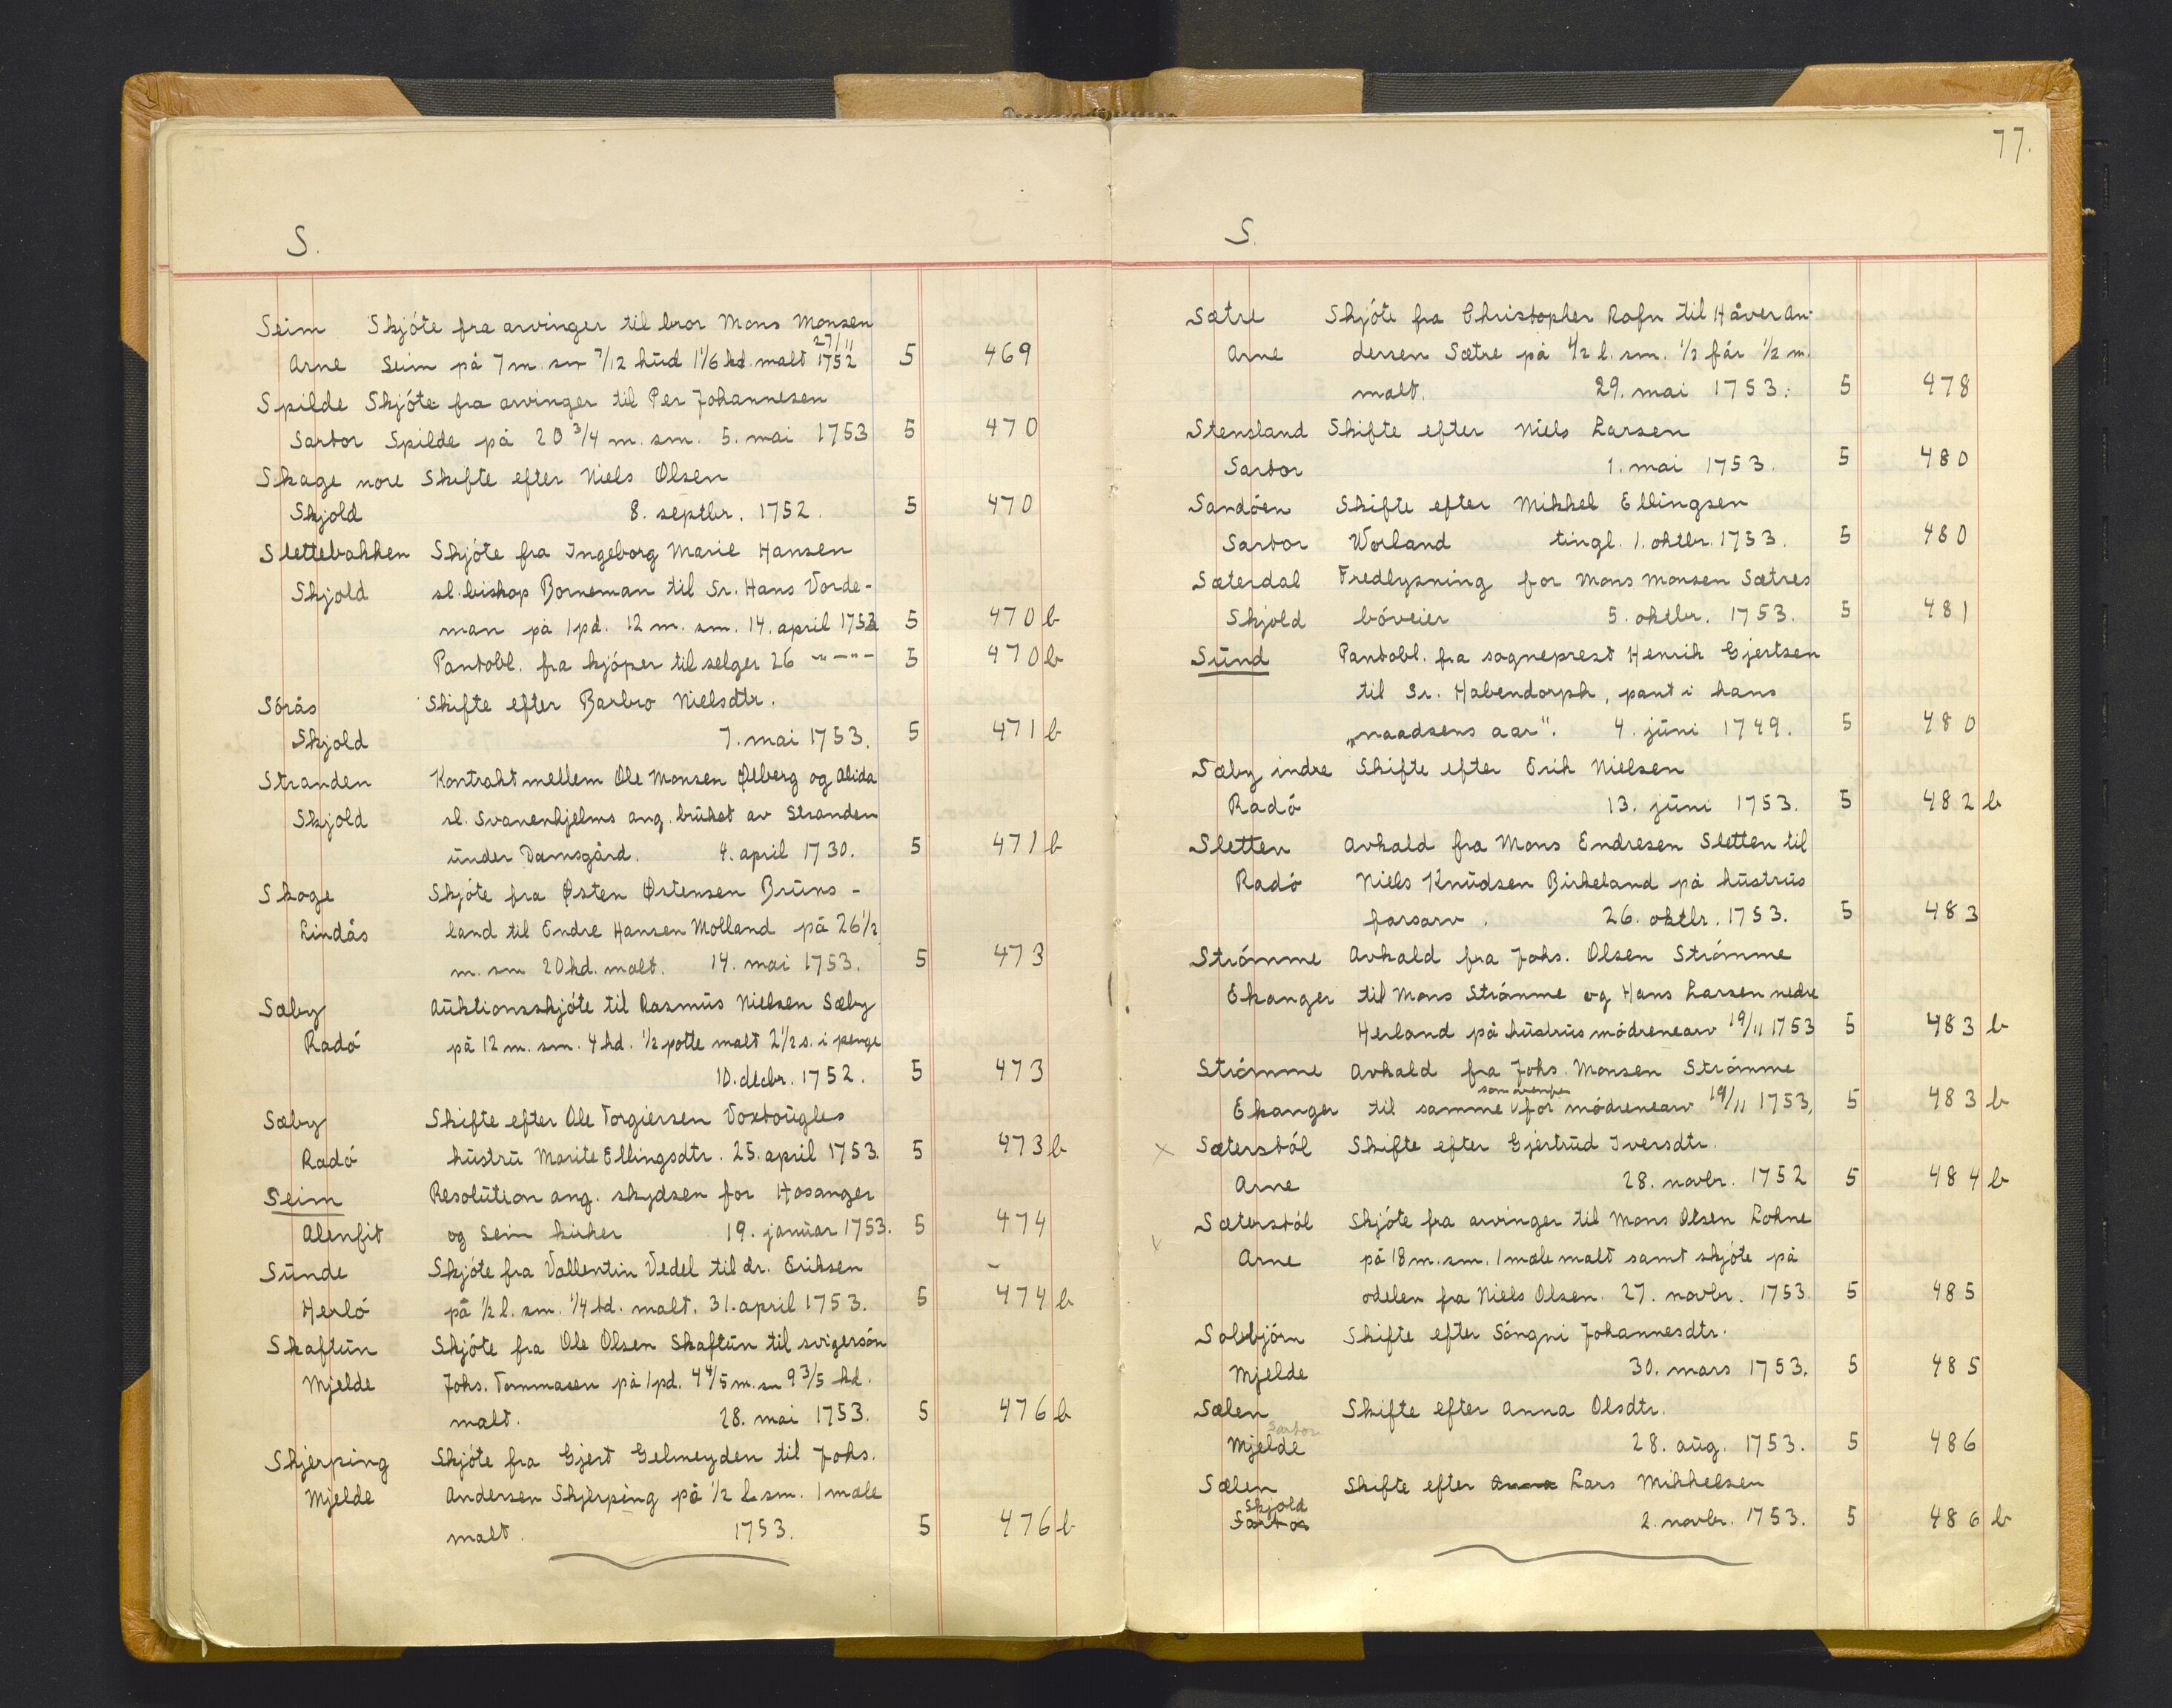 S.
Seim Skjóte fra arvinger til bror Mons Monsen
27/11
Arne Seim på 7 m. sm 7/12 hud 1 1/6 kd. malt 1752 5 469
Spilde Skjóte fra arvinger til Per Johannesen
Sartor Spilde på 20 3/4 m. sm. 5. mai 1753 5 470
Skage nore Skifte efter Niels Olsen
Skjold 8. septbr. 1752. 5 470
Slettebakken Skjóte fra Ingeborg Marie Hansen
Skjold sl. biskop Borneman til Sr. Hans Vorde-
man på 1 pd. 12 m. sm. 14. april 1753 5 470 b
Pantobl. fra kjóper til selger 26 -"-"- 5 470 b
Sórås Skifte efter Barbro Nielsdtr.
Skjold 7. mai 1753. 5 471 b
Stranden Kontrakt mellem Ole Monsen Ølberg og Alida
Skjold sl. Svanenhjelms ang. brüket av Stranden
ünder Damsgård. 4. april 1730. 5 471 b
Skoge Skjóte fra Østen Østensen Brüns-
Lindås land til Endre Hansen Molland på 26 1/2
m. sm 20 kd. malt. 14. mai 1753. 5 473
Sæby Aüktionsskjóte til Rasmüs Nielsen Sæby
Radó på 12 m. sm. 4 kd. 1/2 potte malt 2 1/2 s. i penge
10. decbr. 1752. 5 473
Sæby Skifte efter Ole Torgiersen Voxtoügles
Radó hüstrü Marite Ellingsdtr. 25. april 1753. 5 473 b
Seim Resolütion ang. skydsen for Hosanger
Alenfit og Seim kirker 19. janüar 1753. 5 474
Sünde Skjóte fra Vallentin Vedel til dr. Eriksen
Herló på 1/2 l. sm. 1/4 td. malt. 31. april 1753. 5 474 b
Skaftün Skjóte fra Ole Olsen Skaftün til svigersón
Mjelde Johs. Tommasen på 1 pd. 4 4/5 m. sm 9 3/5 kd.
malt. 28. mai 1753. 5 476 b
Skjerping Skjóte fra Gjert Gelmeyden til Johs.
Mjelde Andersen Skjerping på 1/2 l. sm. 1 mæle
malt. 1753. 5 476 b
77.
S.
Sætre Skjóte fra Christopher Rafn til Håver An-
Arne dersen Sætre på 1/2 l. sm. 1/2 får 1/2 m.
malt. 29. mai 1753. 5 478
Stensland Skifte efter Niels Larsen
Sartor 1. mai 1753. 5 480
Sandóen Skifte efter Mikkel Ellingsen
Sartor Worland tingl. 1. oktbr. 1753. 5 480
Sæterdal Fredlysning for Mons Monsen Sætres
Skjold bóveier 5. oktbr. 1753. 5 481
Sünd Pantobl. fra sogneprest Henrik Gjertsen
til Sr. Habendorph, pant i hans
„naadsens aar". 4. jüni 1749. 5 480
Sæby indre Skifte efter Erik Nielsen
Radó 13. jüni 1753. 5 482 b
Sletten Avkald fra Mons Endresen Sletten til
Radó Niels Knüdsen Birkeland på hüstrüs
farsarv. 26. oktbr. 1753. 5 483
Strómme Avkald fra Johs. Olsen Strómme
Ekanger til Mons Strómme og Hans Larsen nedre
Herland på hüstrüs módrenearv 19/11 1753 5 483 b
Strómme Avkald fra Johs. Monsen Strómme
som ovenfor
Ekanger til samme for módrenearv 19/11 1753, 5 483 b
x Sæterstól Skifte efter Gjertrüd Iversdtr.
Arne 28. novbr. 1752 5 484 b
Sæterstól Skjóte fra arvinger til Mons Olsen Lohne
Arne på 18 m. sm. 1 mæle malt samt skjóte på
odelen fra Niels Olsen. 27. novbr. 1753. 5 485
Solbjórn Skifte efter Sóngni Johannesdtr.
Mjelde 30. mars 1753. 5 485
Sælen Skifte efter Anna Olsdtr.
Sartor
Mjelde 28. aüg. 1753. 5 486
Sælen Skifte efter Lars Mikkelsen
Skjold
Sartor 2. novbr. 1753. 5 486 b